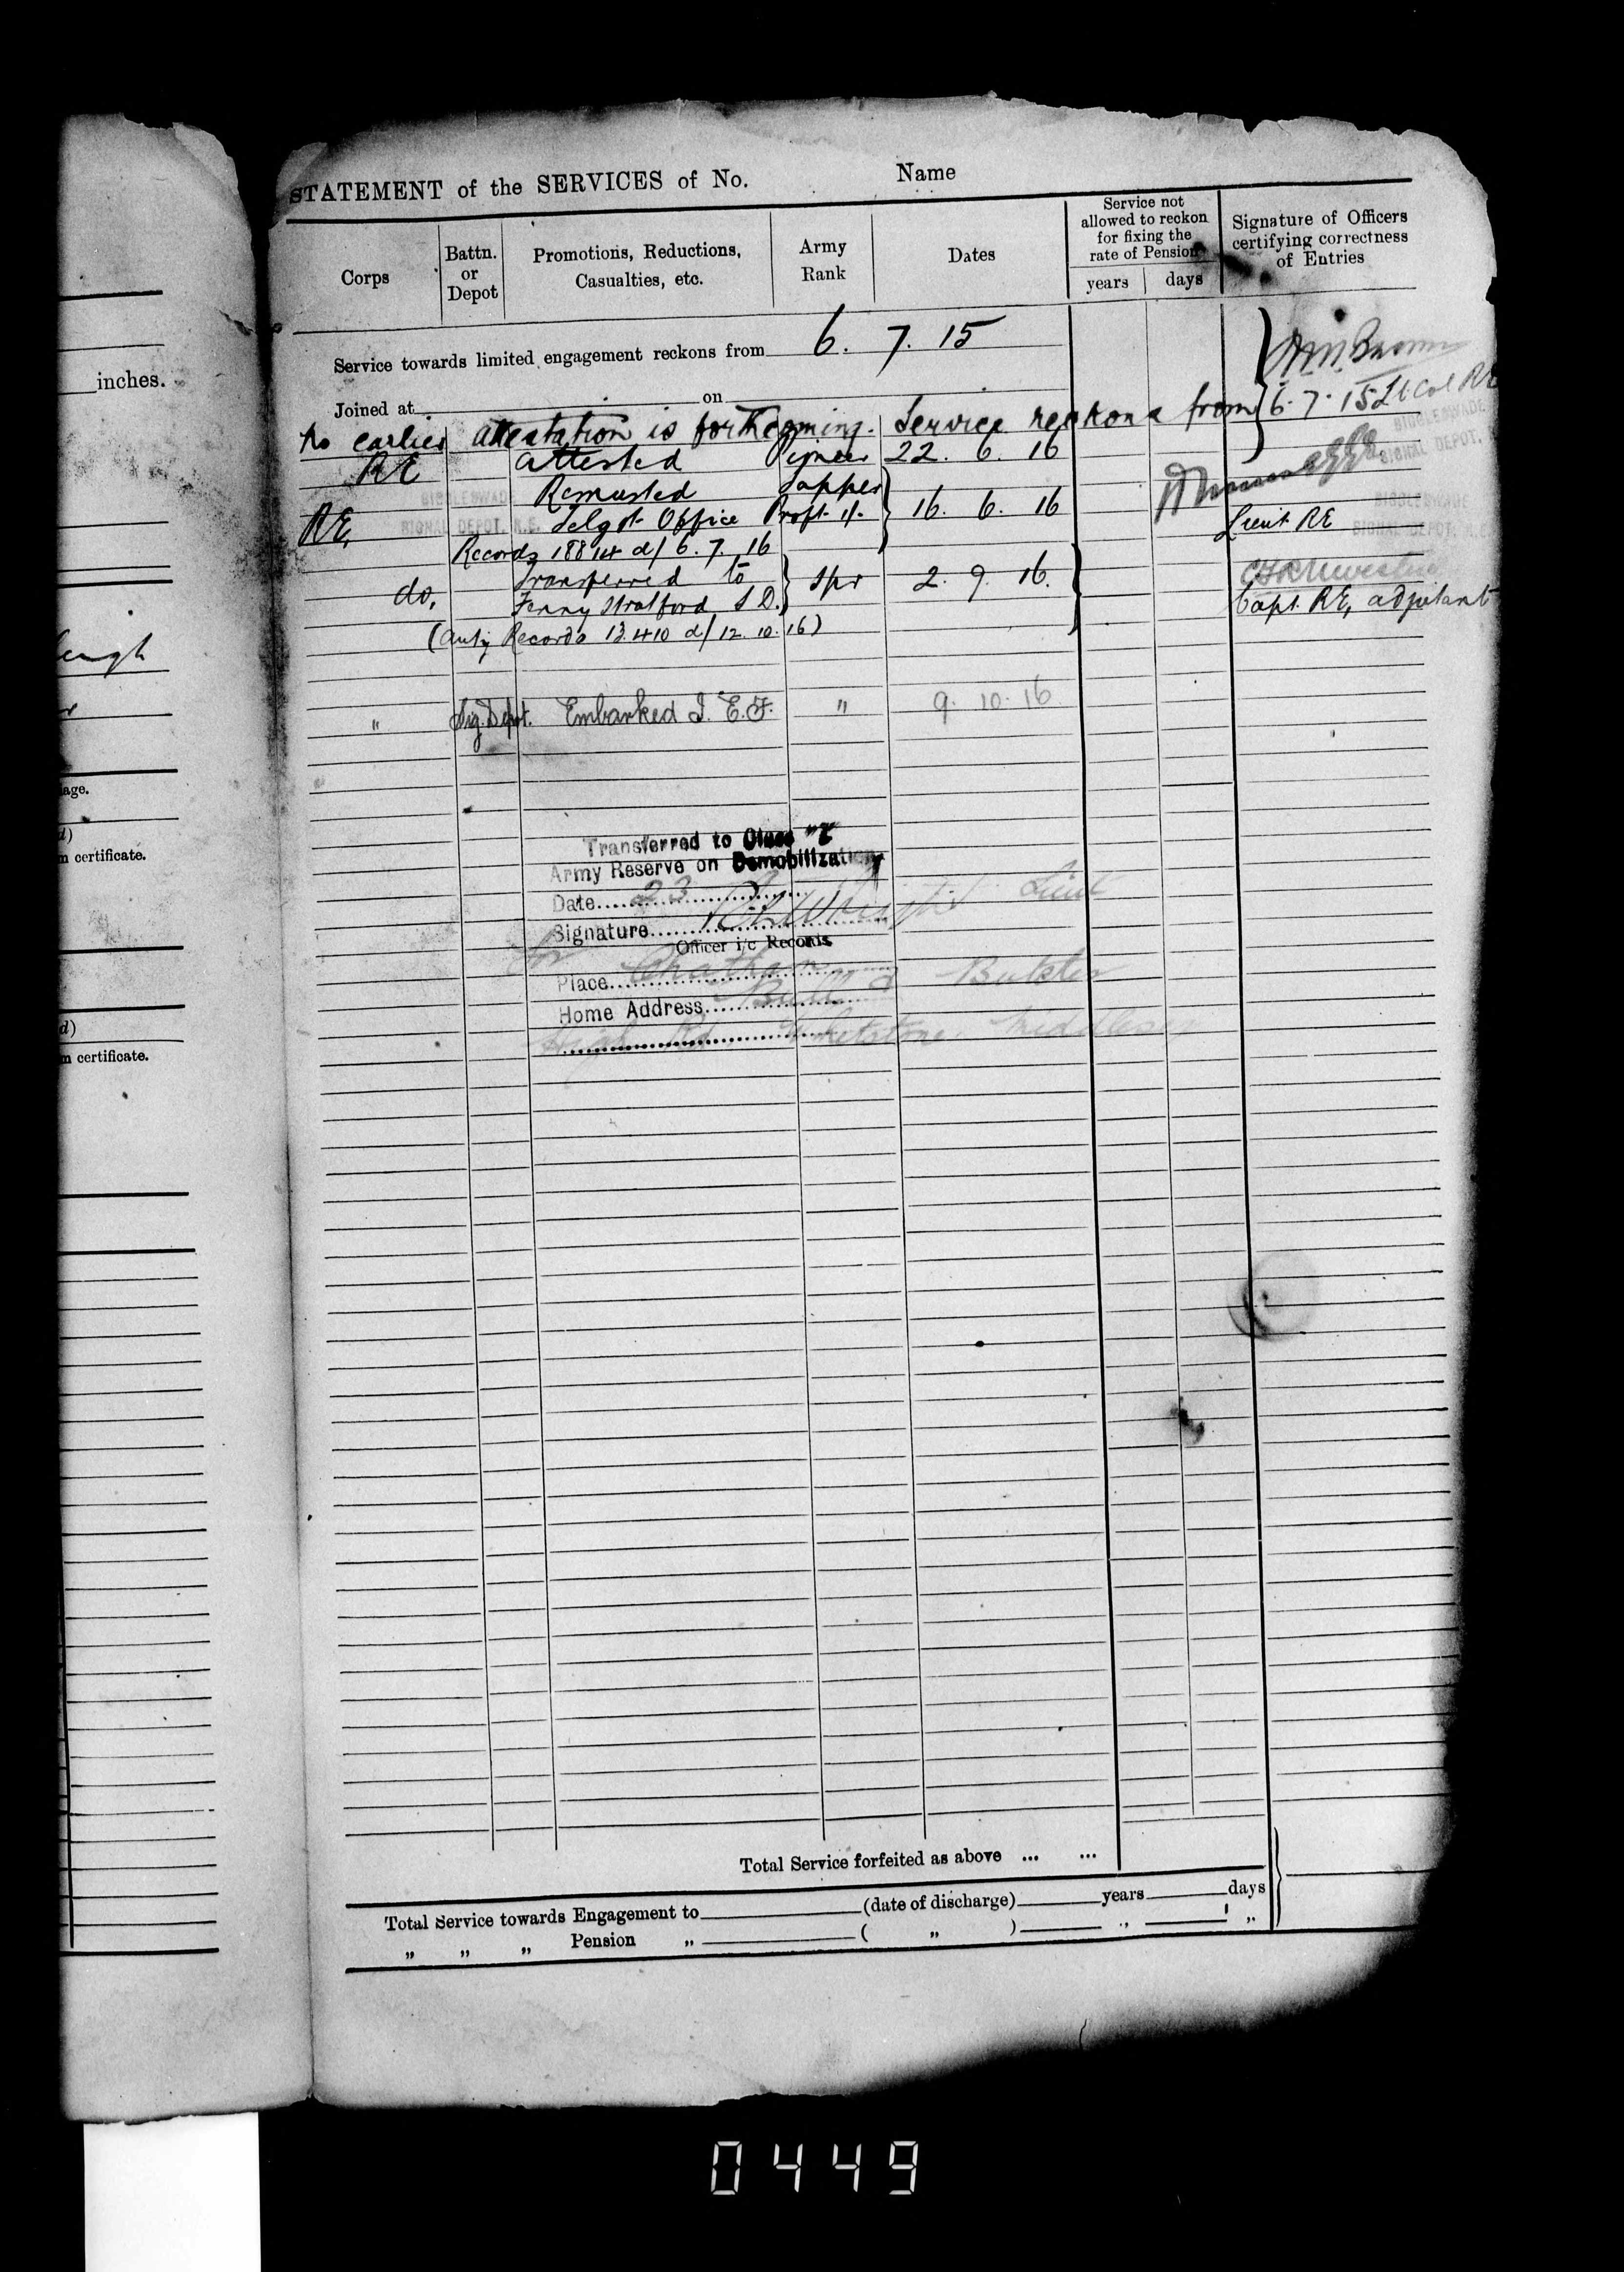 STATEMENT of the SERVICES of No. Name
Corps
Battn. or Depot
Promotions, Reductions, Casualties, etc.
Army Rank
Dates
Service not allowed to reckon for fixing the rate of Pension
years days
Signature of Officers certifying correctness of Entries
Service towards limited engagement reckons from 6. 7. 15
Joined at on
No earlier attestation is forthcoming. Service reckons from 6. 7. 15 Lt. Col RE
RE attested Pioneer 22. 6. 16
BIGGLESWADE Remusted Sapper
RE, SIGNAL DEPOT, R.E. Telgst. Office Proft. 16. 6. 16
Lieut RE
BIGGLESWADE
SIGNAL DEPOT,
BIGGLESWADE
SIGNAL DEPOT, R.E.
Records 18814 d/ 6. 7. 16
do, Transferred to Fenny Stratford S D. Spr 2. 9. 16.
Capt. RE, adjutant
(Auty Records 13410 d/ 12. 10. 16)
" Sig. Depot. Embarked I. E. F. " 9. 10. 16
Transferred to Class "Z
Army Reserve on Demobilization
Date 23
Signature Lieut
Officer i/c Records
for
Place Chatham
Home Address Bull
High Rd Whetstone. Middlesex
Total Service forfeited as above ... ...
Total Service towards Engagement to (date of discharge) years days
„ „ „ Pension „ ( „ ) „ „
inches.
iage.
d)
m certificate.
d)
m certificate.
0449